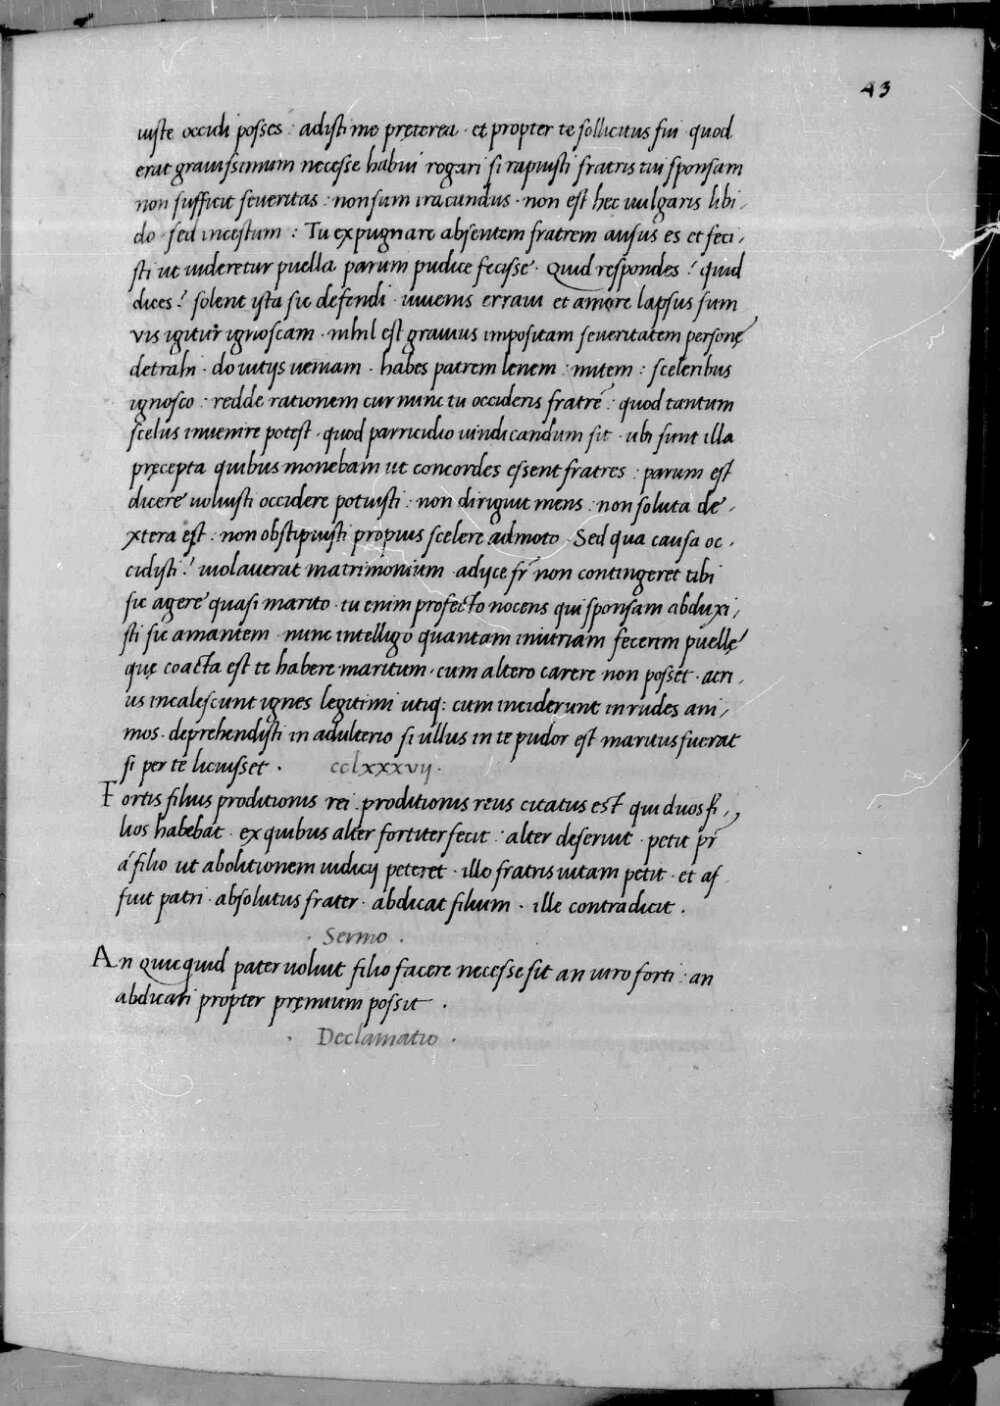 43
iuste occidi posses : adisti me pręterea · et propter te sollicitus fui quod
erat grauissimum necesse habui rogari si rapuisti fratris tui sponsam
non sufficit seueritas : non sum iracundus · non est hec uulgaris libi-
do · sed incestum : Tu expugnare absentem fratrem ausus es et feci-
sti ut uideretur puella parum pudice fecisse · Quid respondes ? quid
dices ? solent ista sic defendi · iuuenis erraui et amore lapsus sum
vis igitur ignoscam · nihil est grauius impositam seueritatem personę
detrahi · do uitijs ueniam · habes patrem lenem : mitem : sceleribus
ignosco : redde rationem cur nunc tu occideris fratrē : quod tantum
scelus inuenire potest · quod parricidio uindicandum sit · ubi sunt illa
pręcepta quibus monebam ut concordes essent fratres : parum est
dicere uoluisti occidere potuisti : non diriguit mens : non soluta de-
xtera est : non obstipuisti propius scelere admoto · Sed qua causa oc-
cidisti ? uiolauerat matrimonium · adijce fr̄ non contingeret tibi
sic agere quasi marito · tu enim profecto nocens qui sponsam abduxi-
sti sic amantem · nunc intelligo quantam iniuriam fecerim puellę
quę coacta est te habere maritum · cum altero carere non posset · acri-
us incalescunt ignes legitimi utiq: cum inciderunt in rudes ani-
mos · deprehendisti in adulterio si ullus in te pudor est maritus fuerat
si per te licuisset · cclxxxvij ·
Fortis filius proditionis rei · proditionis reus citatus est qui duos fi-
lios habebat · ex quibus alter fortiter fecit : alter deseruit · petit pr̄
á filio ut abolitionem iudicij peteret · ille fratris uitam petit · et af
fuit patri · absolutus frater · abdicat filium · ille contradicit ·
· Sermo ·
An quicquid pater uoluit filio facere necesse sit an uiro forti : an
abdicari propter pręmium possit ·
· Declamatio ·